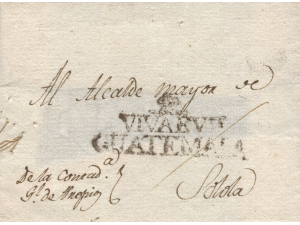 Al Alcalde mayor de
VIVA F VII
GUATEMALA
a
De la Contad.
g.l de Propios
Sólola